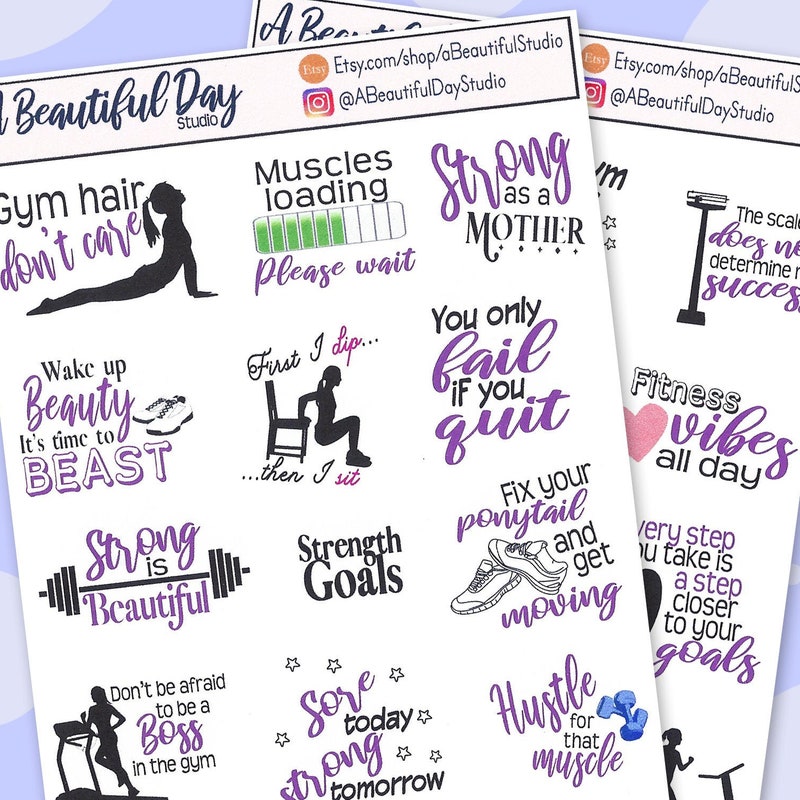 A Beautiful Day
Studio
Etsy
Etsy.com/shop/aBeautifulStudio
@ABeautifulDayStudio
Gym hair
don't care
Muscles
loading
Please wait
Strong
as a
MOTHER
Wake up
Beauty
It's time to
BEAST
First I dip...
...then I sit
You only
fail
if you
quit
Strong
is
Beautiful
Strength
Goals
Fix your
ponytail
and
get
moving
Don't be afraid
to be a
Boss
in the gym
Sore
today
strong
tomorrow
Hustle
for
that
muscle
A Beautiful
Etsy.com/shop/aBeautifulS
@ABeautifulDayStudio
The scale
does no
determine
success
Fitness
vibes
all day
very step
ou take is
a step
closer
to your
goals